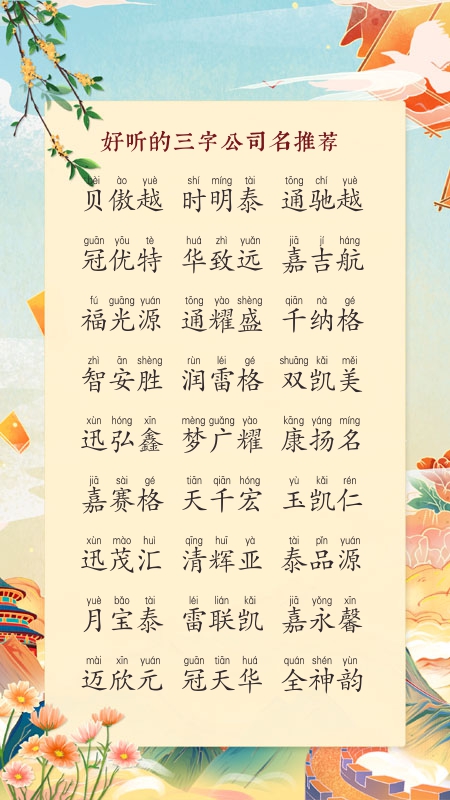 好听的三字公司名推荐
bèi ào yuè shí míng tài tōng chí yuè
贝傲越 时明泰 通驰越
guān yōu tè huá zhì yuǎn jiā jí háng
冠优特 华致远 嘉吉航
fú guāng yuán tōng yào shèng qiān nà gé
福光源 通耀盛 千纳格
zhì ān shèng rùn léi gé shuāng kǎi měi
智安胜 润雷格 双凯美
xùn hóng xīn mèng guǎng yào kāng yáng míng
迅弘鑫 梦广耀 康扬名
jiā sài gé tiān qiān hóng yù kǎi rén
嘉赛格 天千宏 玉凯仁
xùn mào huì qīng huī yà tài pǐn yuán
迅茂汇 清辉亚 泰品源
yuè bǎo tài léi lián kǎi jiā yǒng xīn
月宝泰 雷联凯 嘉永馨
mài xīn yuán guān tiān huá quán shén yùn
迈欣元 冠天华 全神韵